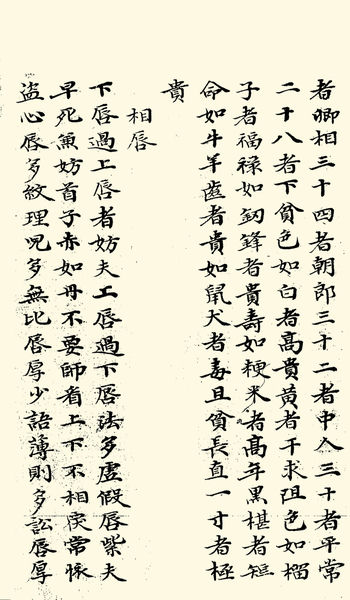 者卿相三十四者朝郎三十二者中人三十者平常
二十八者下貧色如白者高貴黃者干求阻色如榴
子者福禄如釰鋒者貴壽如粳米者高年黑椹者短
命如牛羊齒者貴如鼠犬者毒且貧長直一寸者極
貴
相唇
下唇過上唇者妨夫上唇過下唇法多虛假唇紫夫
早死兼妨首子赤如丹不要師者上下不相
盗心唇多紋理兒多無比唇厚少語薄則多訟唇厚